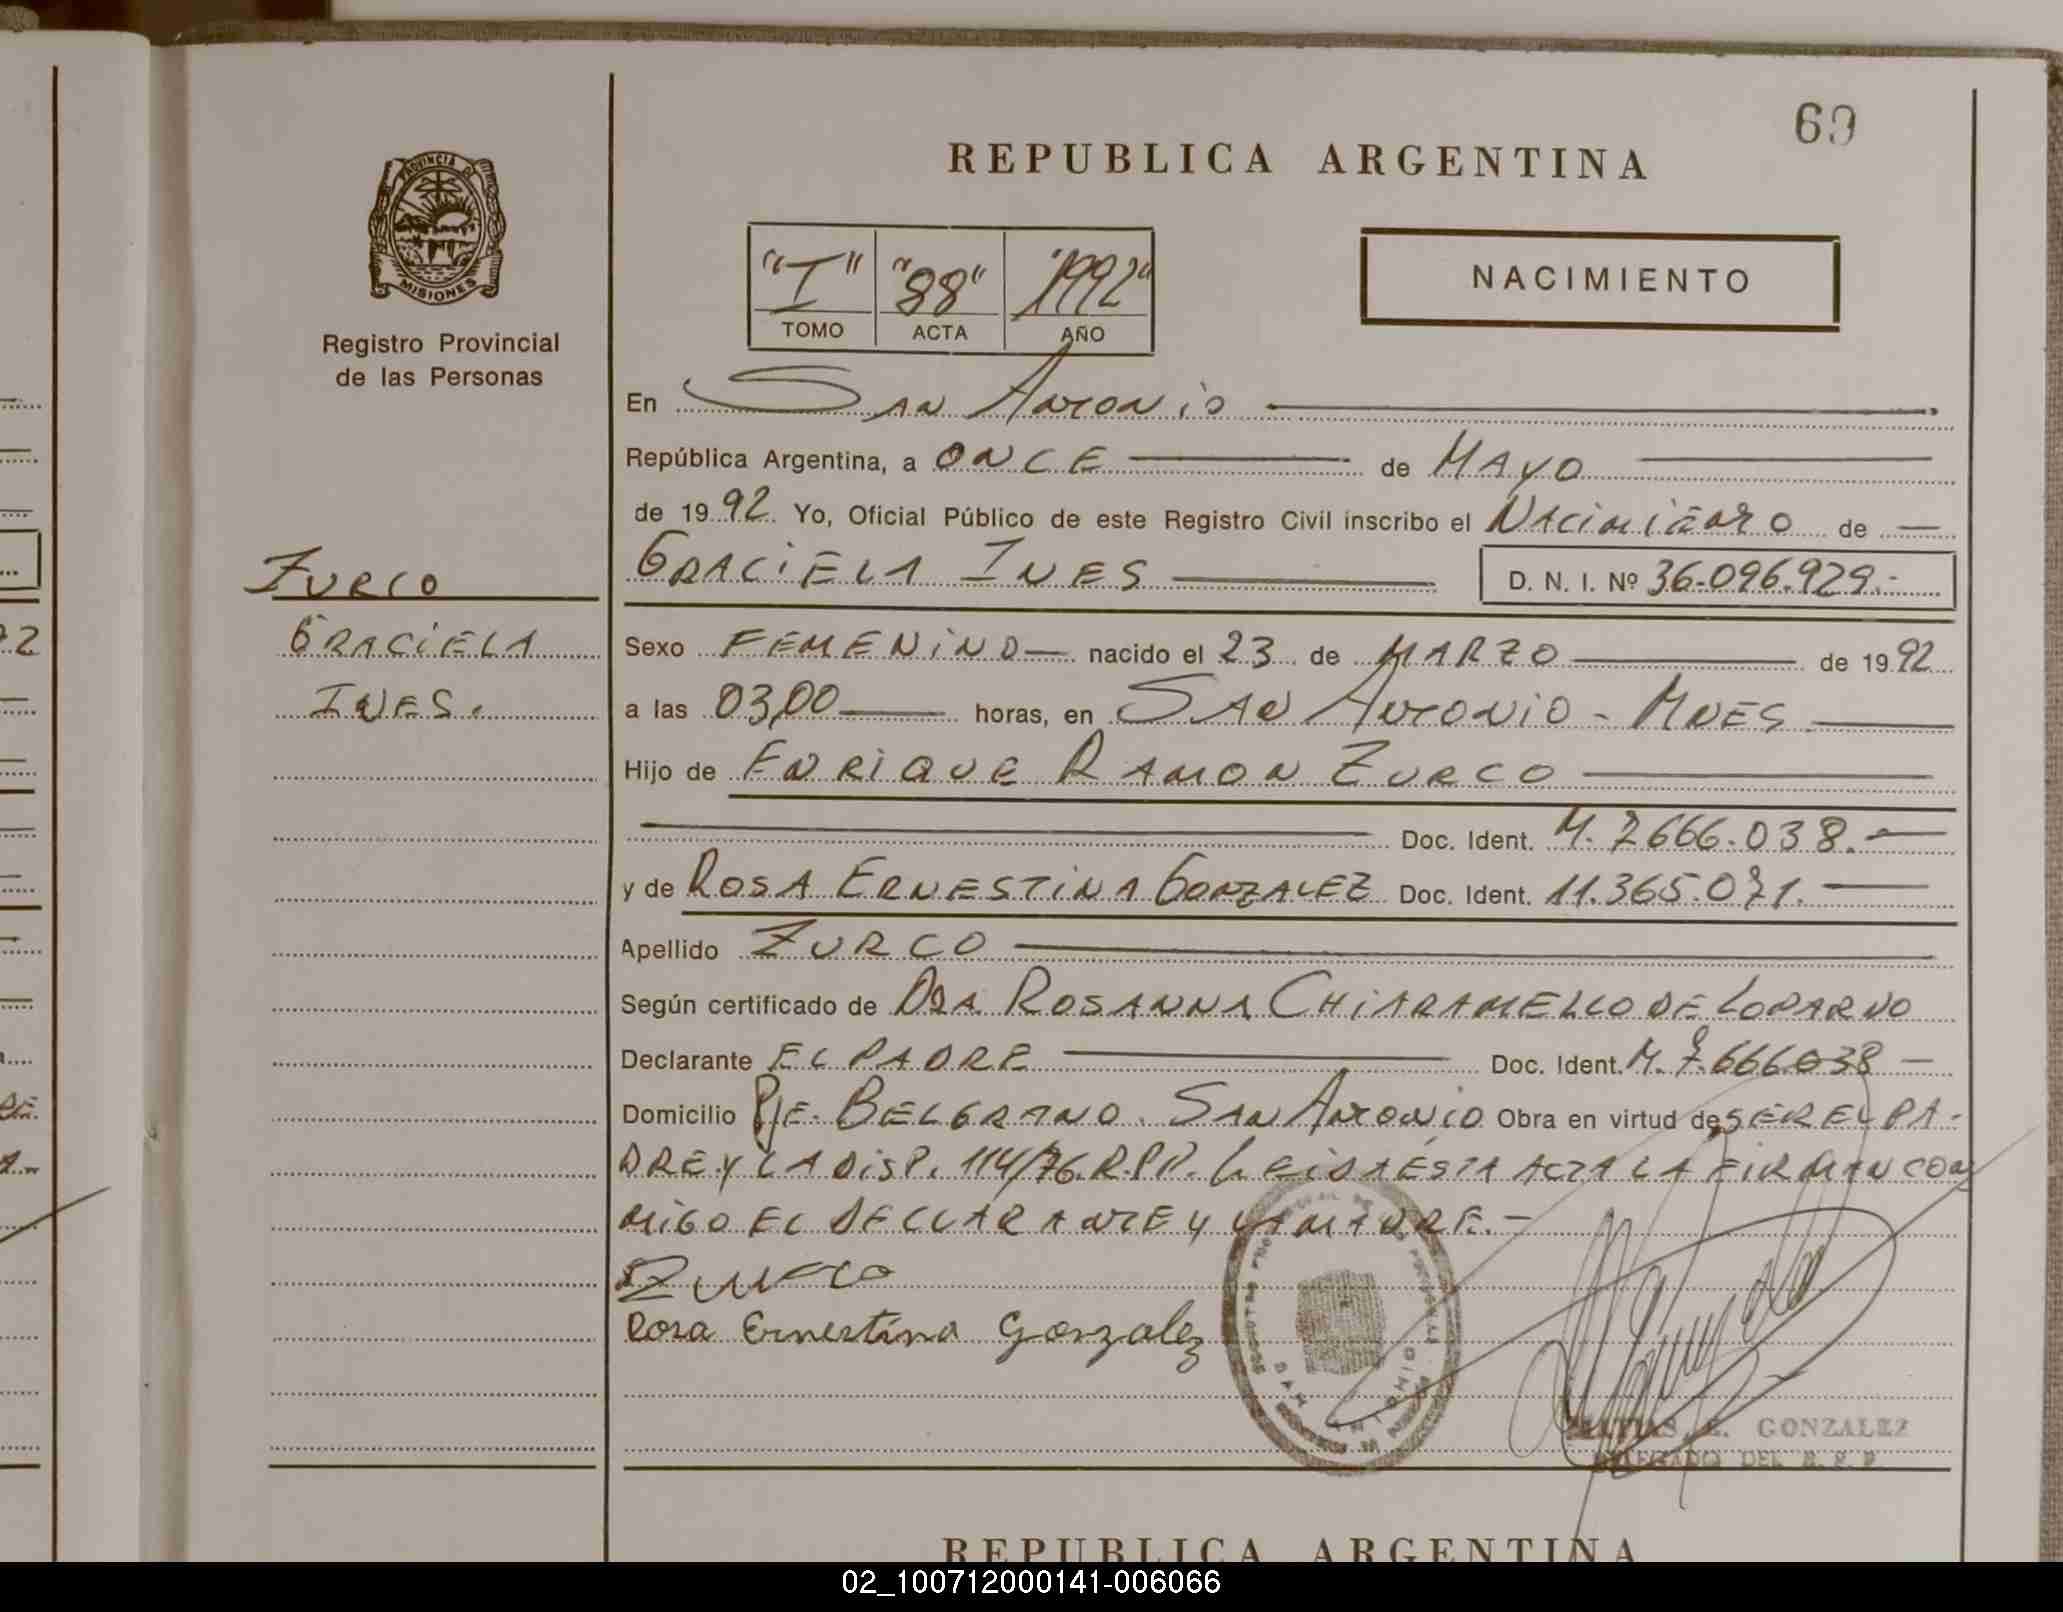 69
REPUBLICA ARGENTINA
PROVINCIA DE
MISIONES
Registro Provincial
de las Personas
"I" "88" "1992"
TOMO ACTA AÑO
NACIMIENTO
En San Antonio
República Argentina, a ONCE de MAYO
de 1992 Yo, Oficial Público de este Registro Civil inscribo el Nacimiento de
GRACIELA INES D. N. I. Nº 36.096.929.-
ZURCO
GRACIELA
INES.
Sexo FEMENINO nacido el 23 de MARZO de 1992
a las 03,00 horas, en SAN ANTONIO - MNES
Hijo de ENRIQUE RAMON ZURCO
Doc. Ident. M. 7666.038.-
y de ROSA ERNESTINA GONZALEZ Doc. Ident. 11.365.071.
Apellido ZURCO
Según certificado de DRA ROSANNA CHIARAMELLO DE LODARNO
Declarante EL PADRE Doc. Ident. M. 7.666038
Domicilio Pje. BELGRANO. SAN ANTONIO Obra en virtud de SER EL PA-
DRE Y LA DISP. 114/76.R.P.P. LEIDA ÉSTA ACTA LA FIRMAN CON
MIGO EL DECLARANTE Y LA MADRE.-
Zurco
Rosa Ernestina Gonzalez
SAN ANTONIO
GONZALEZ
DELEGADO DEL R. P. P.
REPUBLICA ARGENTINA
02_100712000141-006066